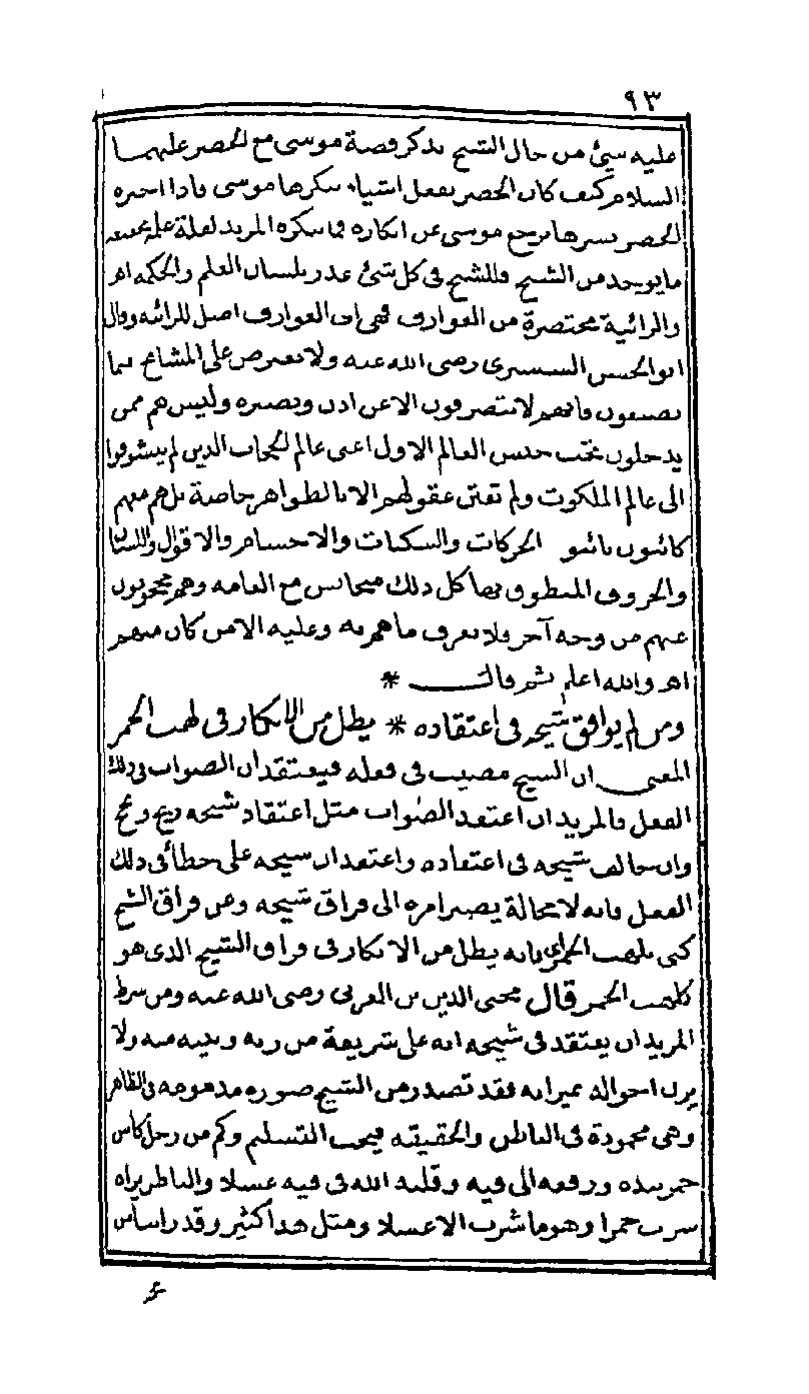 ٩٣
عليه شئ من حال الشيخ يذكر قصة موسى مع الخضر عليهما
السلام كيف كان الخضر يفعل اشياء ينكرها موسى فاذا اخبره
الخضر بسرها يرجع موسى عن انكاره فما ينكره المريد لقلة علمه بحقيقة
ما يوجد من الشيخ فللشيخ فى كل شئ عذر بلسان العلم والحكمه اهـ
والرائية مختصرة من العوارف فهى اى العوارف اصل للرائيه وقال
ابو الحسن الششترى رضى الله عنه ولا تعترض على المشايخ فيما
يصنعون فانهم لا يتصرفون الا عن اذن وبصيره وليس هم ممن
يدخلون تحت جنس العالم الاول اعنى عالم الحجاب الذين لم يتشوفوا
الى عالم الملكوت ولم تعتن عقولهم الا بالظواهر خاصة بل هم معهم
كائنون بائنو الحركات والسكنات والاجسام والاقوال واللسان
والحروف المنطوق بها كل ذلك متجانس مع العامه وهم محجوبون
عنهم من وجه آخر فلا يعرف ما هم به وعليه الا من كان منهم
اهـ والله اعلم ثم قال *
ومن لم يوافق شيخه فى اعتقاده * يظل من الانكار فى لهب الجمر
المعنى ان الشيخ مصيب فى فعله فيعتقد ان الصواب فى ذلك
الفعل فالمريد ان اعتقد الصواب مثل اعتقاد شيخه ربح ونجح
وان خالف شيخه فى اعتقاده واعتقد ان شيخه على خطأ فى ذلك
الفعل فانه لا محالة يصير امره الى فراق شيخه وعن فراق الشيخ
كنى بلهب الجمر اى فانه يظل من الانكار فى فراق الشيخ الذى هو
كلهب الجمر قال محيى الدين بن العربى رضى الله عنه ومن شرط
المريد ان يعتقد فى شيخه انه على شريعة من ربه وبينه منه ولا
يزن احواله بميزانه فقد تصدر من الشيخ صورة مذمومه فى الظاهر
وهى محمودة فى الباطن والحقيقه فيجب التسليم وكم من رجل كأس
خمر بيده ورفعه الى فيه وقلبه الله فى فيه عسلا والناظر يراه
شرب خمرا وهو ما شرب الا عسلا ومثل هذا كثير وقد راينا من